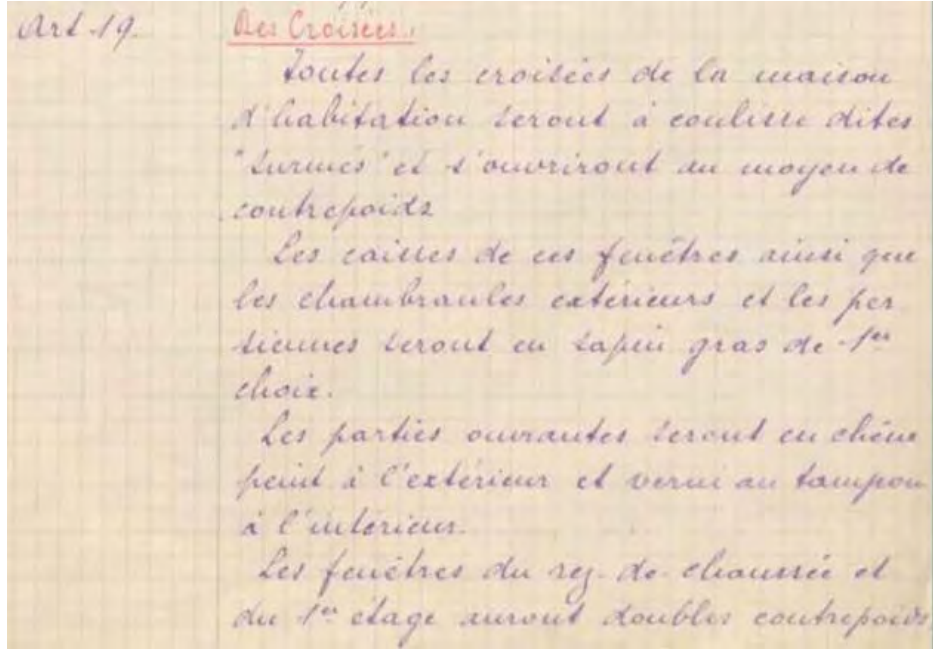 Art 19. Des Croisées.
Toutes les croisées de la maison
d'habitation seront à coulisse dites
"surmés" et s'ouvriront au moyen de
contrepoids
Les caisses de ces fenêtres ainsi que
les chambranles extérieurs et les per
siennes seront en sapin gras de 1er
choix.
Les parties ouvrantes seront en chêne
peint à l'extérieur et verni au tampon
à l'intérieur.
Les fenêtres du rez-de-chaussée et
du 1er étage auront doubles contrepoids,